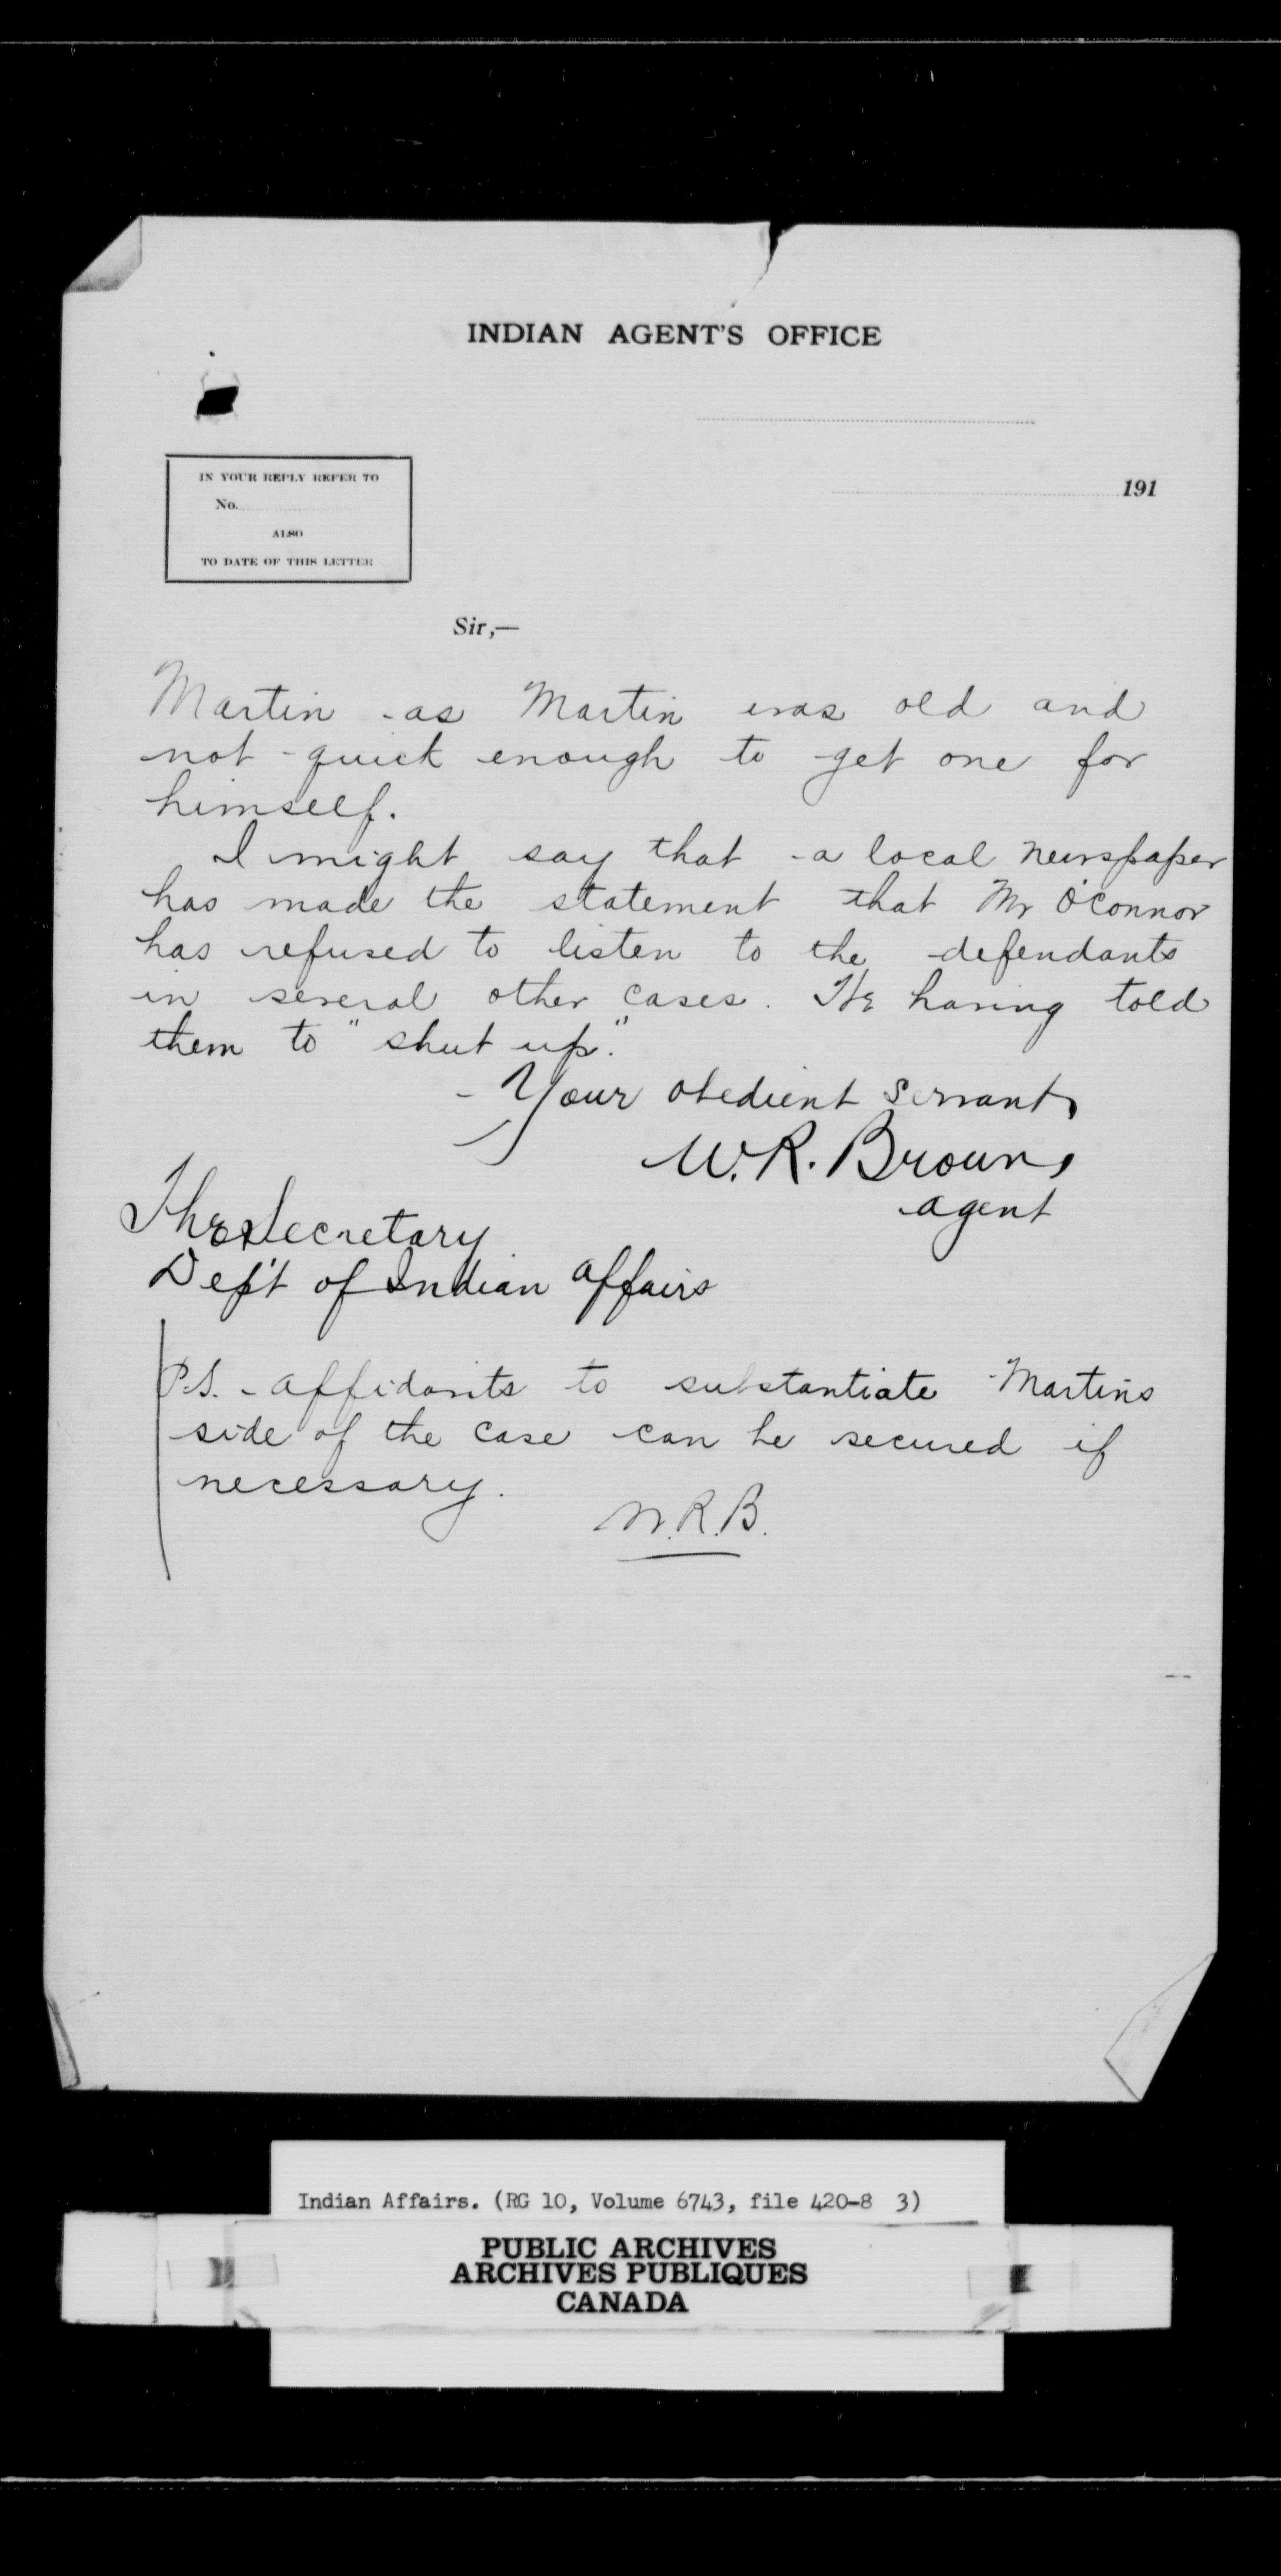 INDIAN AGENT'S OFFICE
191
IN YOUR REPLY REFER TO
No.
ALSO
TO DATE OF THIS LETTER
Sir,—
Martin as Martin was old and
not quick enough to get one for
himself.
I might say that a local newspaper
has made the statement that Mr O'Connor
has refused to listen to the defendants
in several other cases. He having told
them to "shut up."
Your obedient servant,
W. R. Brown,
agent
The Secretary
Dep't of Indian Affairs
P.S. Affidavits to substantiate Martins
side of the case can be secured if
necessary.
W.R.B.
Indian Affairs. (RG 10, Volume 6743, file 420-8 3)
PUBLIC ARCHIVES
ARCHIVES PUBLIQUES
CANADA